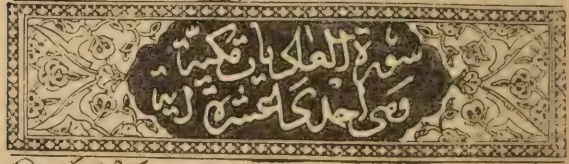 سورة العاديات مكية
وهي احدى عشرة اية